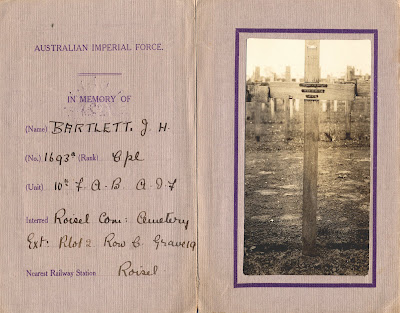 AUSTRALIAN IMPERIAL FORCE.
IN MEMORY OF
(Name) BARTLETT. J. H.
(No.) 1693a (Rank) Cpl
(Unit) 10th F. A. B. A. I. F
Interred Roisel Com: Cemetery
Ext: Plot 2. Row C. Grave 19
Nearest Railway Station Roisel